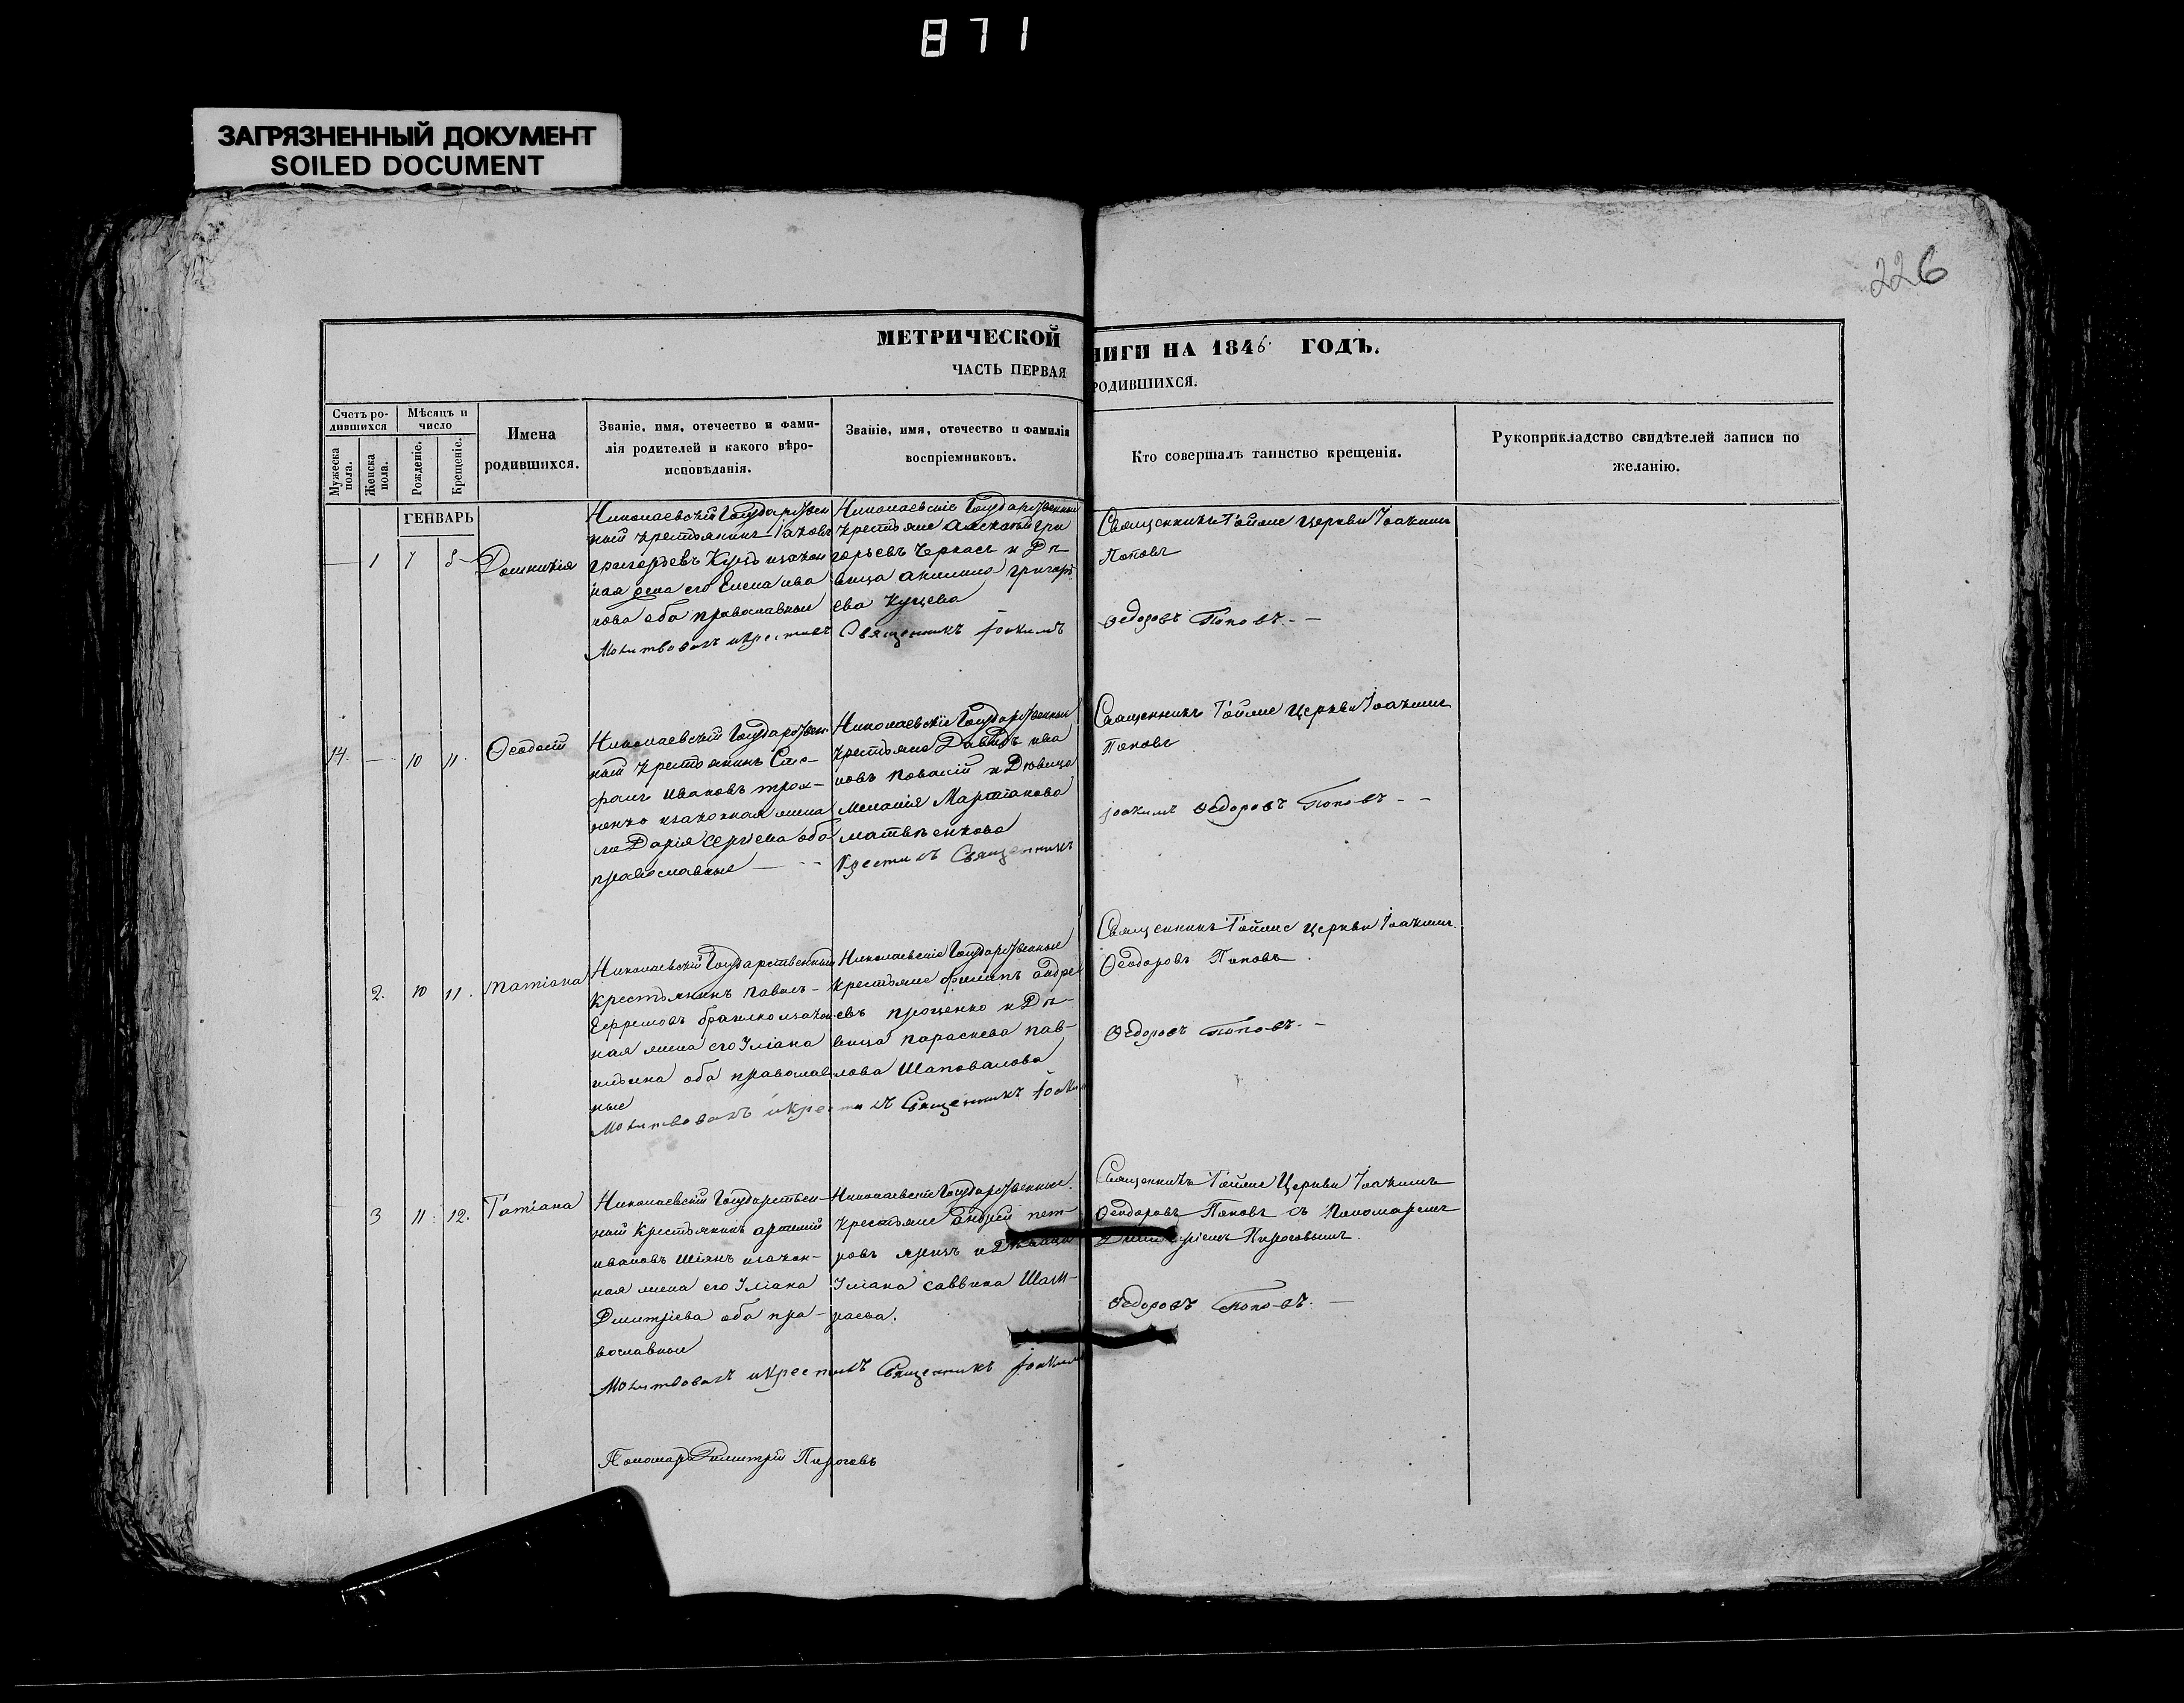 871
ЗАГРЯЗНЕННЫЙ ДОКУМЕНТ
SOILED DOCUMENT
226
МЕТРИЧЕСКОЙ
НИГИ НА 1846 ГОДЪ.
ЧАСТЬ ПЕРВАЯ
РОДИВШИХСЯ.
Счетъ ро-
дившихся
Мѣсяцъ и
число
Мужеска
пола.
Женска
пола.
Рожденіе.
Крещеніе.
Имена
родившихся.
Званіе, имя, отечество и фами-
лія родителей и какого вѣро-
исповѣданія.
Званіе, имя, отечество и фамилія
воспріемниковъ.
Кто совершалъ таинство крещенія.
Рукоприкладство свидѣтелей записи по
желанію.
ГЕНВАРЬ
1 7 8 Домникія
Николаевскій Государствен
ный крестьянинъ Іаковъ
Григорьевъ Куцъ изакон
ная жена его Елена ива
нова оба православные
Молитвовалъ икрестилъ
Николаевскіе Государственные
крестьяне Алексѣй Гри
горьевъ Черкасъ и Дѣ
вица Акилина Григорь
ева Куцева
Священникъ Іоакимъ
Священникъ Тойже Церкви Іоакимъ
Поповъ
Ѳедоровъ Поповъ. - -
14. — 10 11. Ѳеодосій
Николаевскій Государствен
ный крестьянинъ
Ивановъ
изаконная жена
его Дарія Сергіева оба
православные — - -
Николаевскіе Государственные
крестьяне Давидъ ива
новъ и Дѣвица
Меланія Мартинова
матвѣенкова
Крестилъ Священникъ
Священникъ Тойже Церкви Іоакимъ
Поповъ
Іоакимъ Ѳедоровъ Поповъ - -
2. 10 11. Татіана
Николаевскій Государственный
Крестьянинъ Павелъ -
Ефремовъ изакон
ная жена его Іуліана
ильина оба православ
ные
Молитвовалъ икрестилъ Священникъ Іоаким
Николаевскіе Государственные
крестьяне Филипъ Андре
евъ проценко и Дѣ-
вица параскева пав-
лова Шаповалова
Священникъ Тойже Церкви Іоакимъ
Ѳеодоровъ Поповъ.
Ѳедоровъ Поповъ. -
3 11. 12. Татіана
Николаевскій Государствен-
ный Крестьянинъ артемій
ивановъ Шіянъ изакон-
ная жена его Іуліана
Дмитріева оба пра-
вославные
Молитвовалъ икрестилъ Священникъ Іоаким
Николаевскіе Государственные
крестьяне Андрей пет-
ровъ и Дѣвица
Іуліана саввина Шам-
раева.
Священникъ Тойже Церкви Іоакимъ
Ѳеодоровъ Поповъ съ Пономаремъ
Димитріемъ Пироговымъ.
Ѳедоровъ Поповъ. —
Пономарь Димитрій Пироговъ